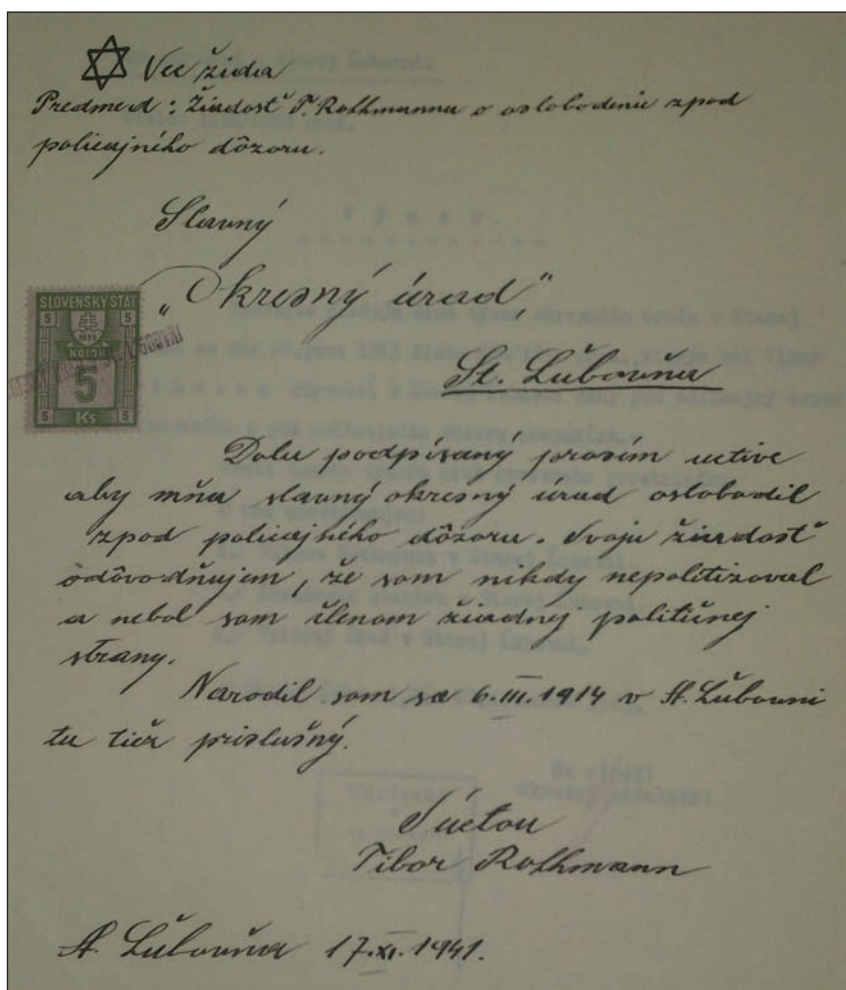 Vec žida
Predmed: Žiadosť T. Rothmanna o oslobodenie zpod
policajného dôzoru.
Slavný
„Okresný úrad,"
St. Ľubovňa
SLOVENSKÝ ŠTÁT
5 5
1939
KOLOK
5
5 Ks 5
Dolu podpísaný prosím uctive
aby mňa slavný okresný úrad oslobodil
zpod policajného dôzoru. Svoju žiadosť
odôvodňujem, že som nikdy nepolitizoval
a nebol som členom žiadnej političnej
strany.
Narodil som sa 6.III.1914 v St. Ľubovni
tu tiež príslušný.
S úctou
Tibor Rothmann
St. Ľubovňa 17.XI.1941.